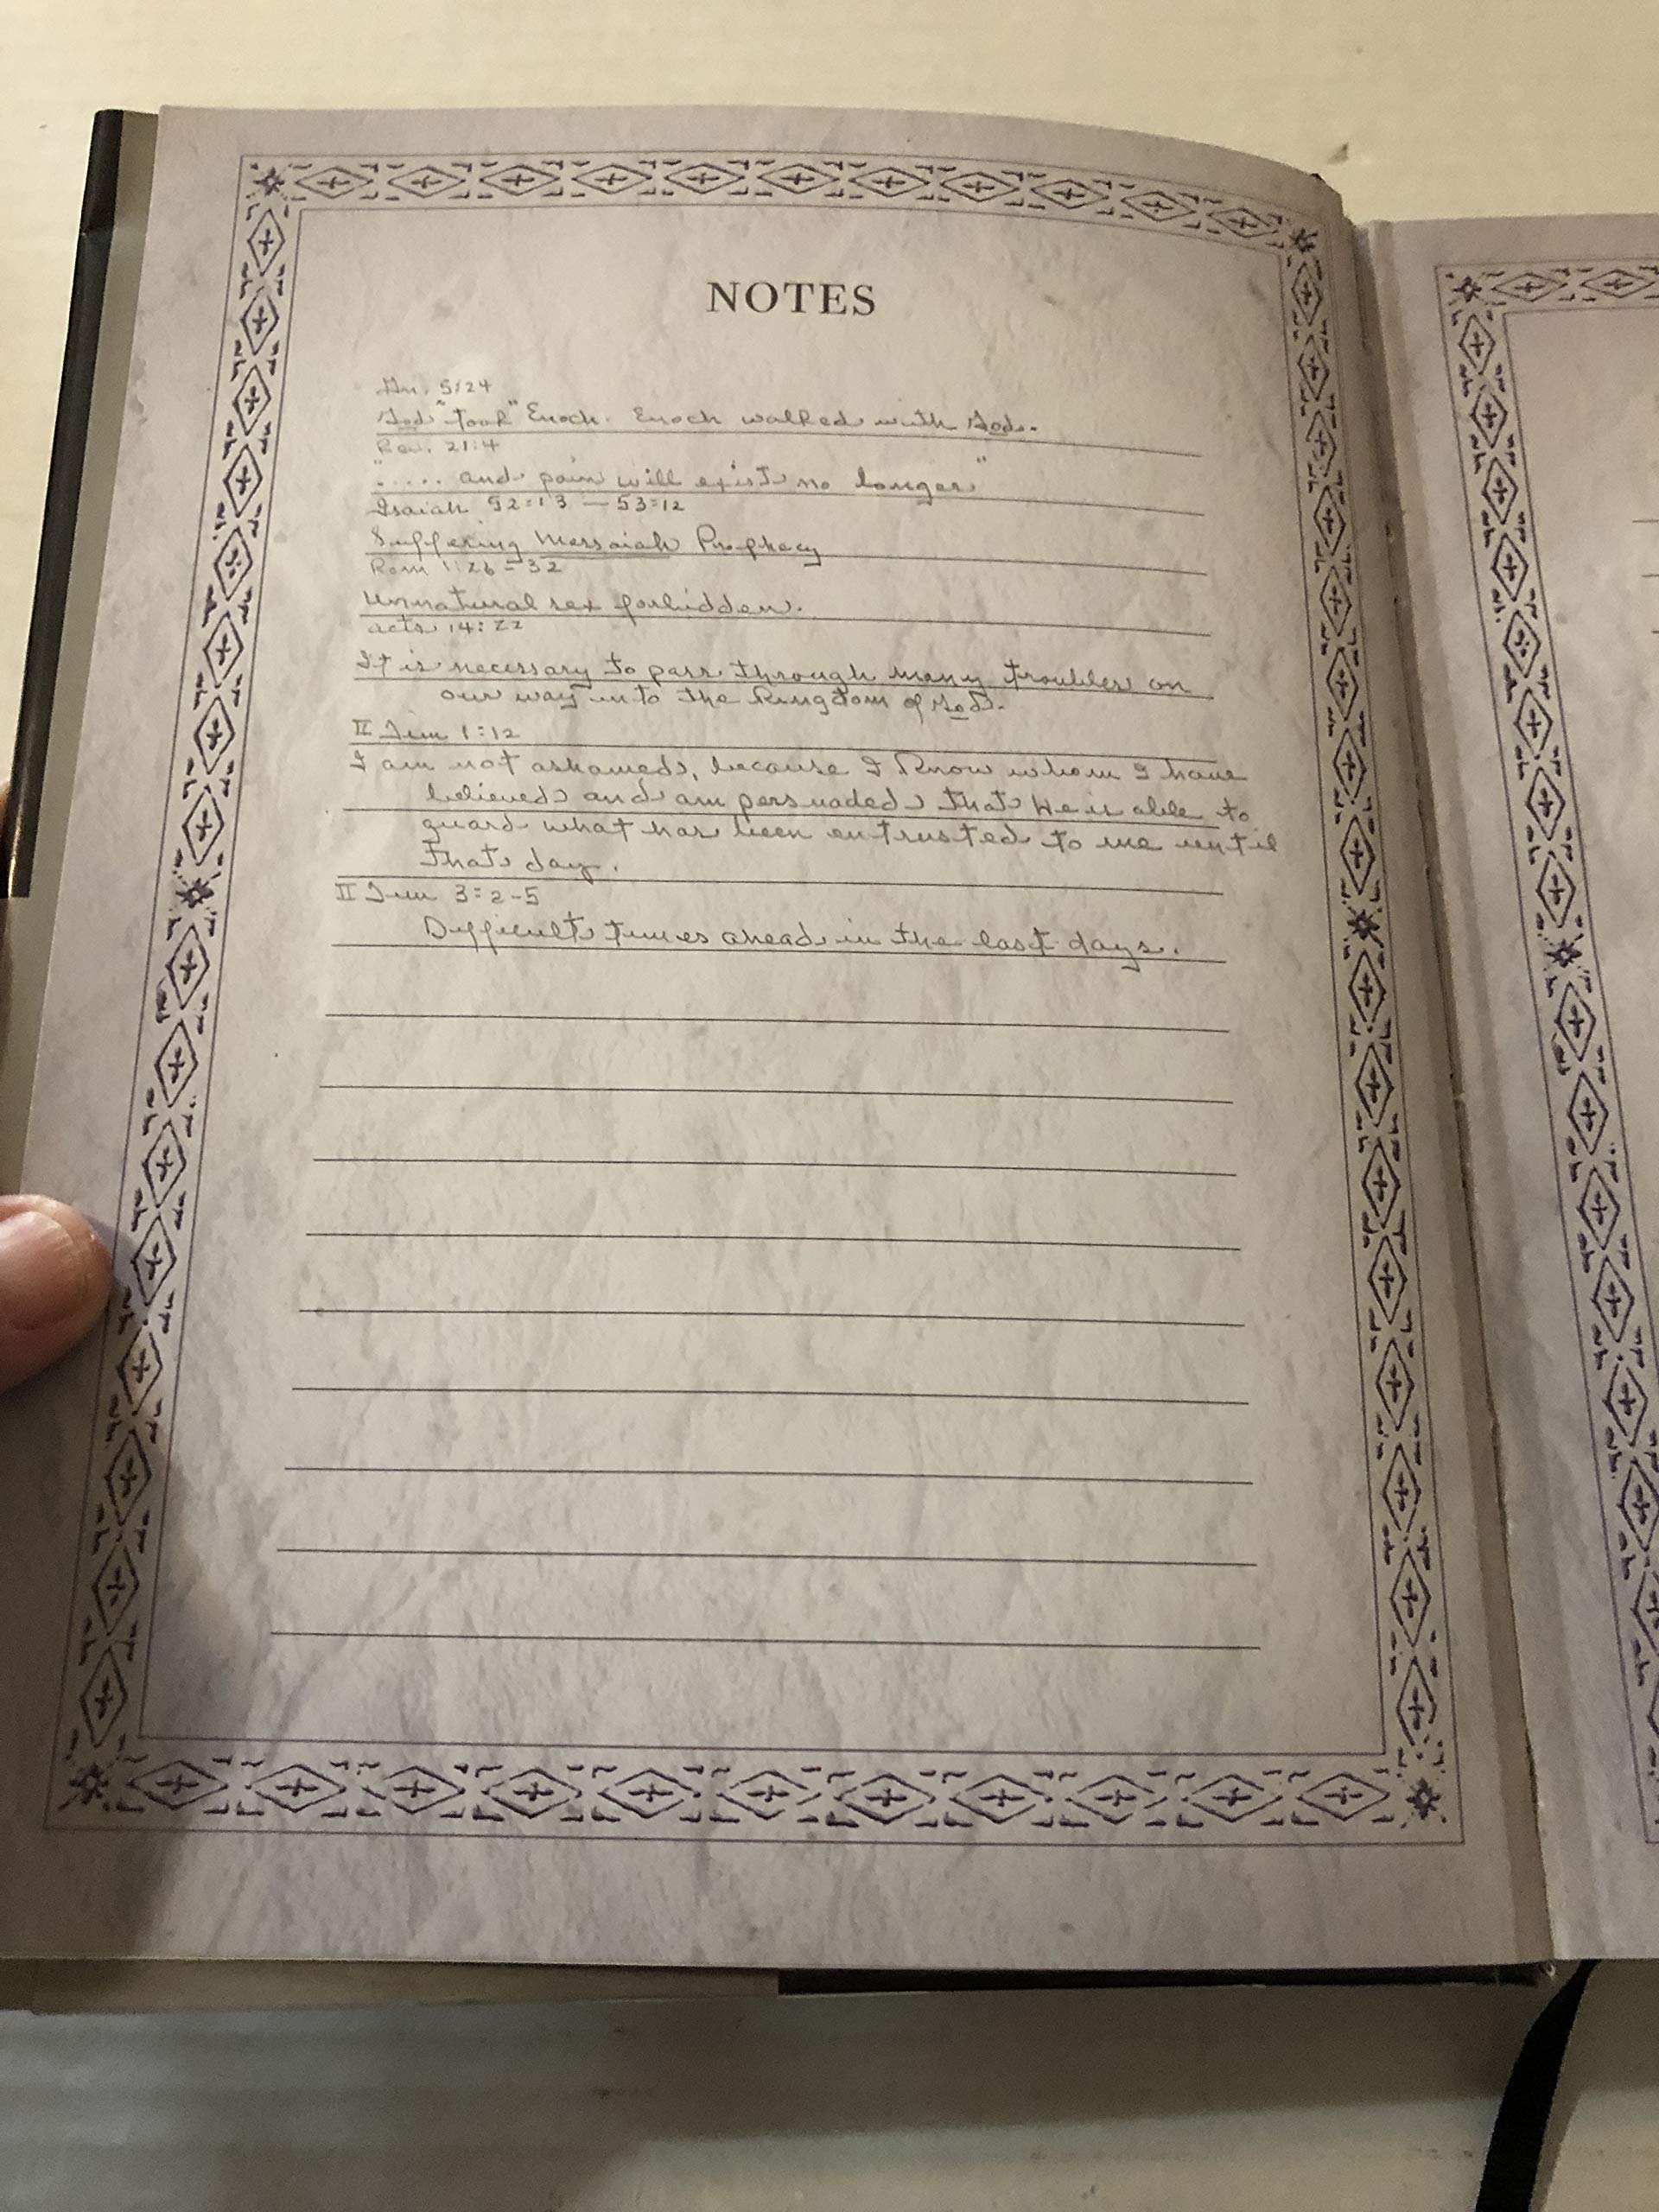 NOTES
Gn. 5:24
God "took" Enoch. Enoch walked with God.
Rev. 21:4
"..... and pain will exist no longer"
Isaiah 52:13 — 53:12
Suffering Messaiah Prophecy
Rom 1:26-32
Unnatural sex forbidden.
Acts 14:22
It is necessary to pass through many troubles on
our way into the Kingdom of God.
II Tim 1:12
I am not ashamed, because I know whom I have
believed and am persuaded that He is able to
guard what has been entrusted to me until
that day.
II Tim 3:2-5
Difficult times ahead in the last days.